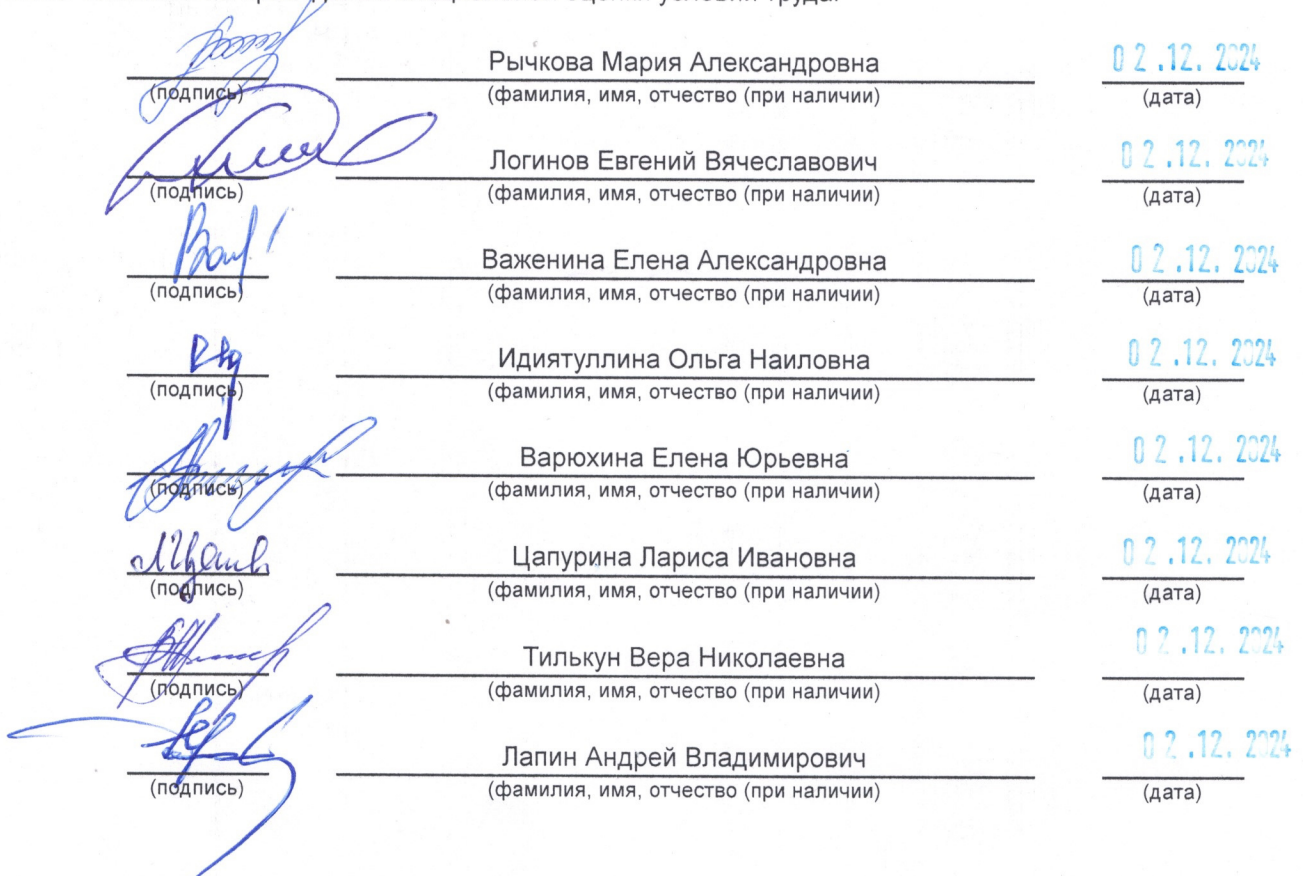 оценки условий труда.
Рычкова Мария Александровна 02.12.2024
(подпись) (фамилия, имя, отчество (при наличии) (дата)
Логинов Евгений Вячеславович 02.12.2024
(подпись) (фамилия, имя, отчество (при наличии) (дата)
Важенина Елена Александровна 02.12.2024
(подпись) (фамилия, имя, отчество (при наличии) (дата)
Идиятуллина Ольга Наиловна 02.12.2024
(подпись) (фамилия, имя, отчество (при наличии) (дата)
Варюхина Елена Юрьевна 02.12.2024
(подпись) (фамилия, имя, отчество (при наличии) (дата)
Цапурина Лариса Ивановна 02.12.2024
(подпись) (фамилия, имя, отчество (при наличии) (дата)
Тилькун Вера Николаевна 02.12.2024
(подпись) (фамилия, имя, отчество (при наличии) (дата)
Лапин Андрей Владимирович 02.12.2024
(подпись) (фамилия, имя, отчество (при наличии) (дата)